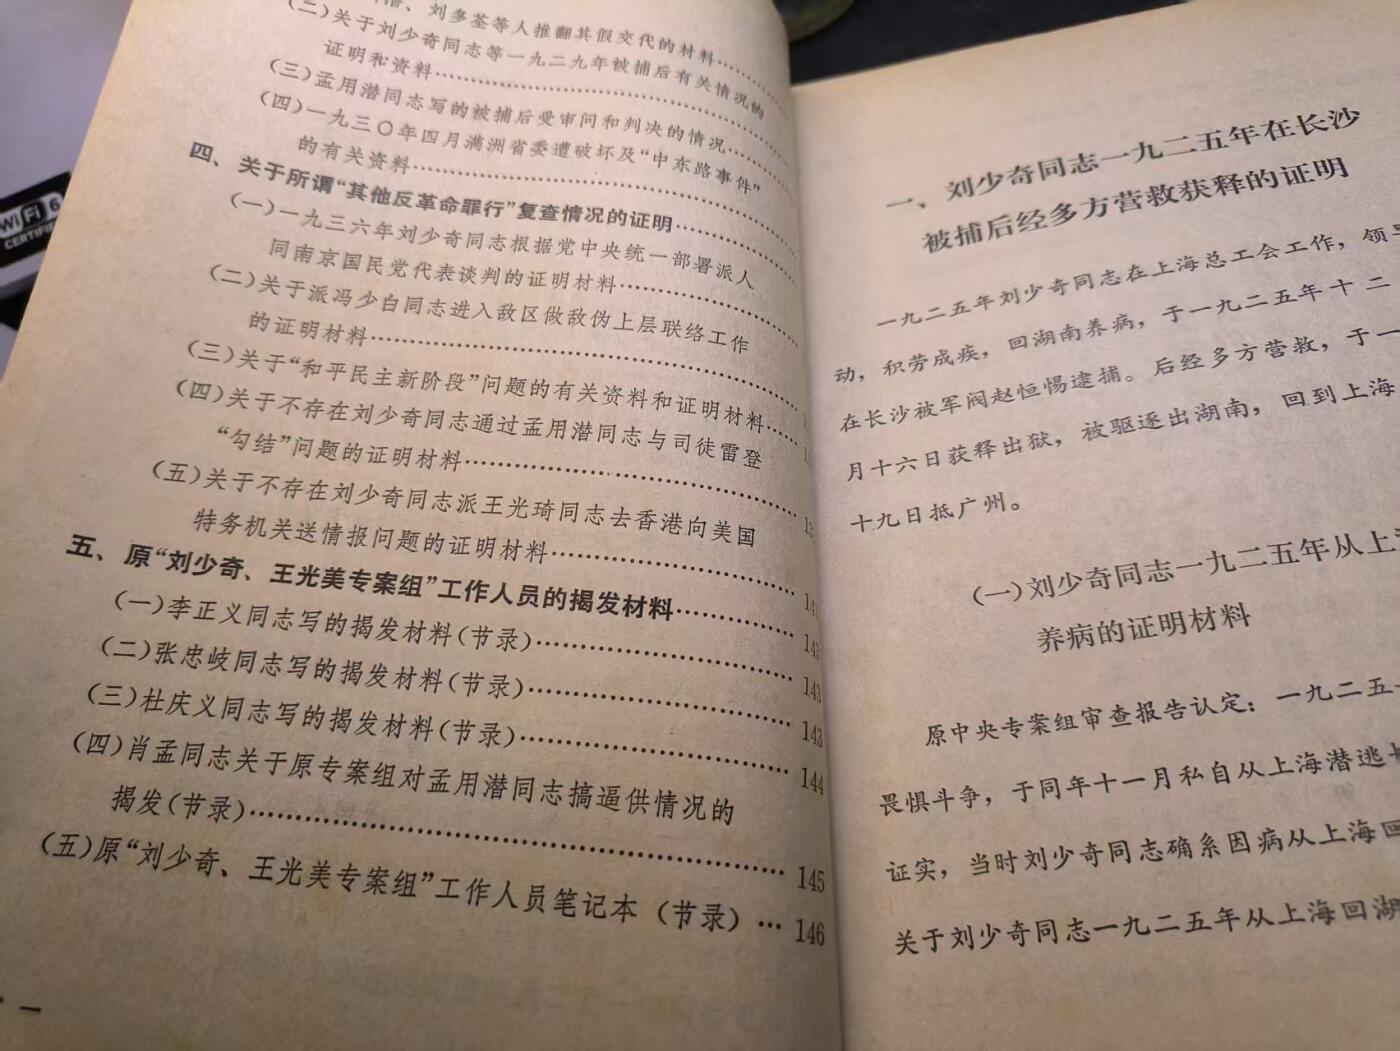 、刘多荃等人推翻其假交代的材料……
(二)关于刘少奇同志等一九二九年被捕后有关情况的
证明和资料……
(三)孟用潜同志写的被捕后受审问和判决的情况……
(四)一九三〇年四月满洲省委遭破坏及“中东路事件”
的有关资料……
四、关于所谓“其他反革命罪行”复查情况的证明……
(一)一九三六年刘少奇同志根据党中央统一部署派人
同南京国民党代表谈判的证明材料……
(二)关于派冯少白同志进入敌区做敌伪上层联络工作
的证明材料……
(三)关于“和平民主新阶段”问题的有关资料和证明材料……
(四)关于不存在刘少奇同志通过孟用潜同志与司徒雷登
“勾结”问题的证明材料……
(五)关于不存在刘少奇同志派王光琦同志去香港向美国
特务机关送情报问题的证明材料……141
五、原“刘少奇、王光美专案组”工作人员的揭发材料……143
(一)李正义同志写的揭发材料(节录)……143
(二)张忠岐同志写的揭发材料(节录)……143
(三)杜庆义同志写的揭发材料(节录)……144
(四)肖孟同志关于原专案组对孟用潜同志搞逼供情况的
揭发(节录)……145
(五)原“刘少奇、王光美专案组”工作人员笔记本(节录)…146
一、刘少奇同志一九二五年在长沙
被捕后经多方营救获释的证明
一九二五年刘少奇同志在上海总工会工作，领导
动，积劳成疾，回湖南养病，于一九二五年十二
在长沙被军阀赵恒惕逮捕。后经多方营救，于一
月十六日获释出狱，被驱逐出湖南，回到上海
十九日抵广州。
(一)刘少奇同志一九二五年从上海
养病的证明材料
原中央专案组审查报告认定：一九二五
畏惧斗争，于同年十一月私自从上海潜逃长
证实，当时刘少奇同志确系因病从上海回
关于刘少奇同志一九二五年从上海回湖
WiFi 6
CERTIFIE